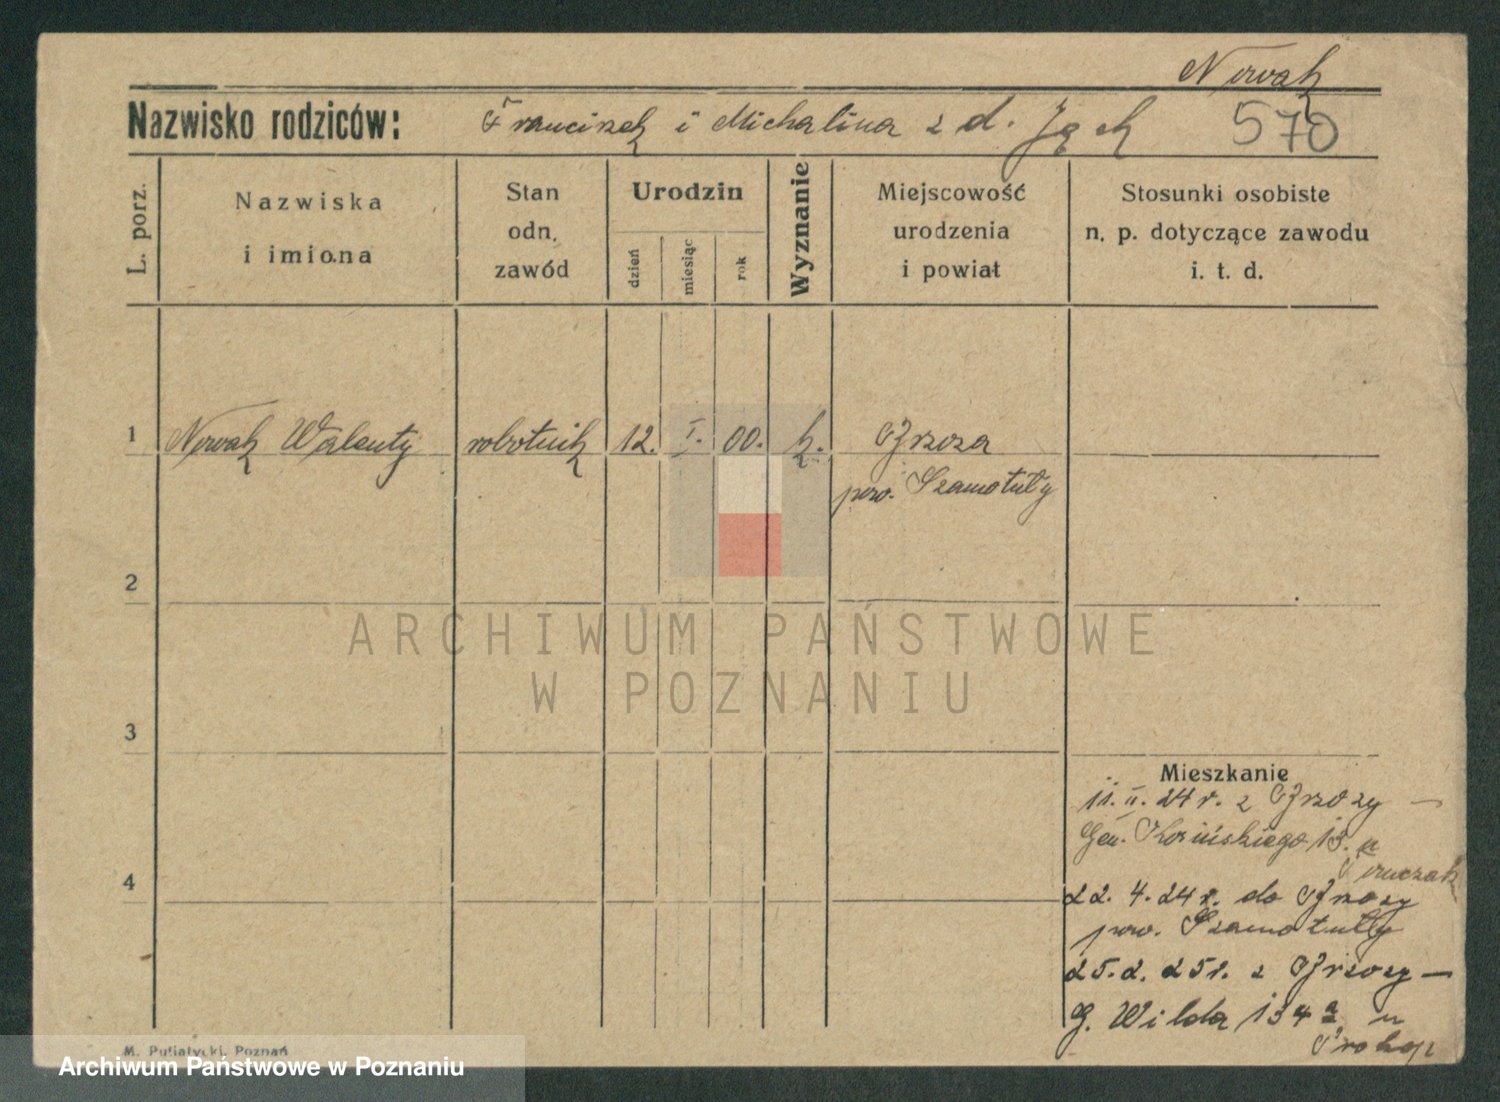 Nowak
Nazwisko rodziców: Franciszek i Michalina z d. Jąek
570
L. porz.
Nazwiska
i imiona
Stan
odn.
zawód
Urodzin
dzień
miesiąc
rok
Wyznanie
Miejscowość
urodzenia
i powiat
Stosunki osobiste
n. p. dotyczące zawodu
i. t. d.
1 Nowak Walenty robotnik 12. I. 00. k.
pow. Szamotuły
2
ARCHIWUM PAŃSTWOWE
W POZNANIU
3
Mieszkanie
11. II. 24 r. z
4
Gen. Kosińskiego 13.
22. 4. 24 r. do
pow. Szamotuły
25. 2. 25 r. z
G. Wilda 134 a u
Prokop
M. Putiatycki, Poznań
Archiwum Państwowe w Poznaniu